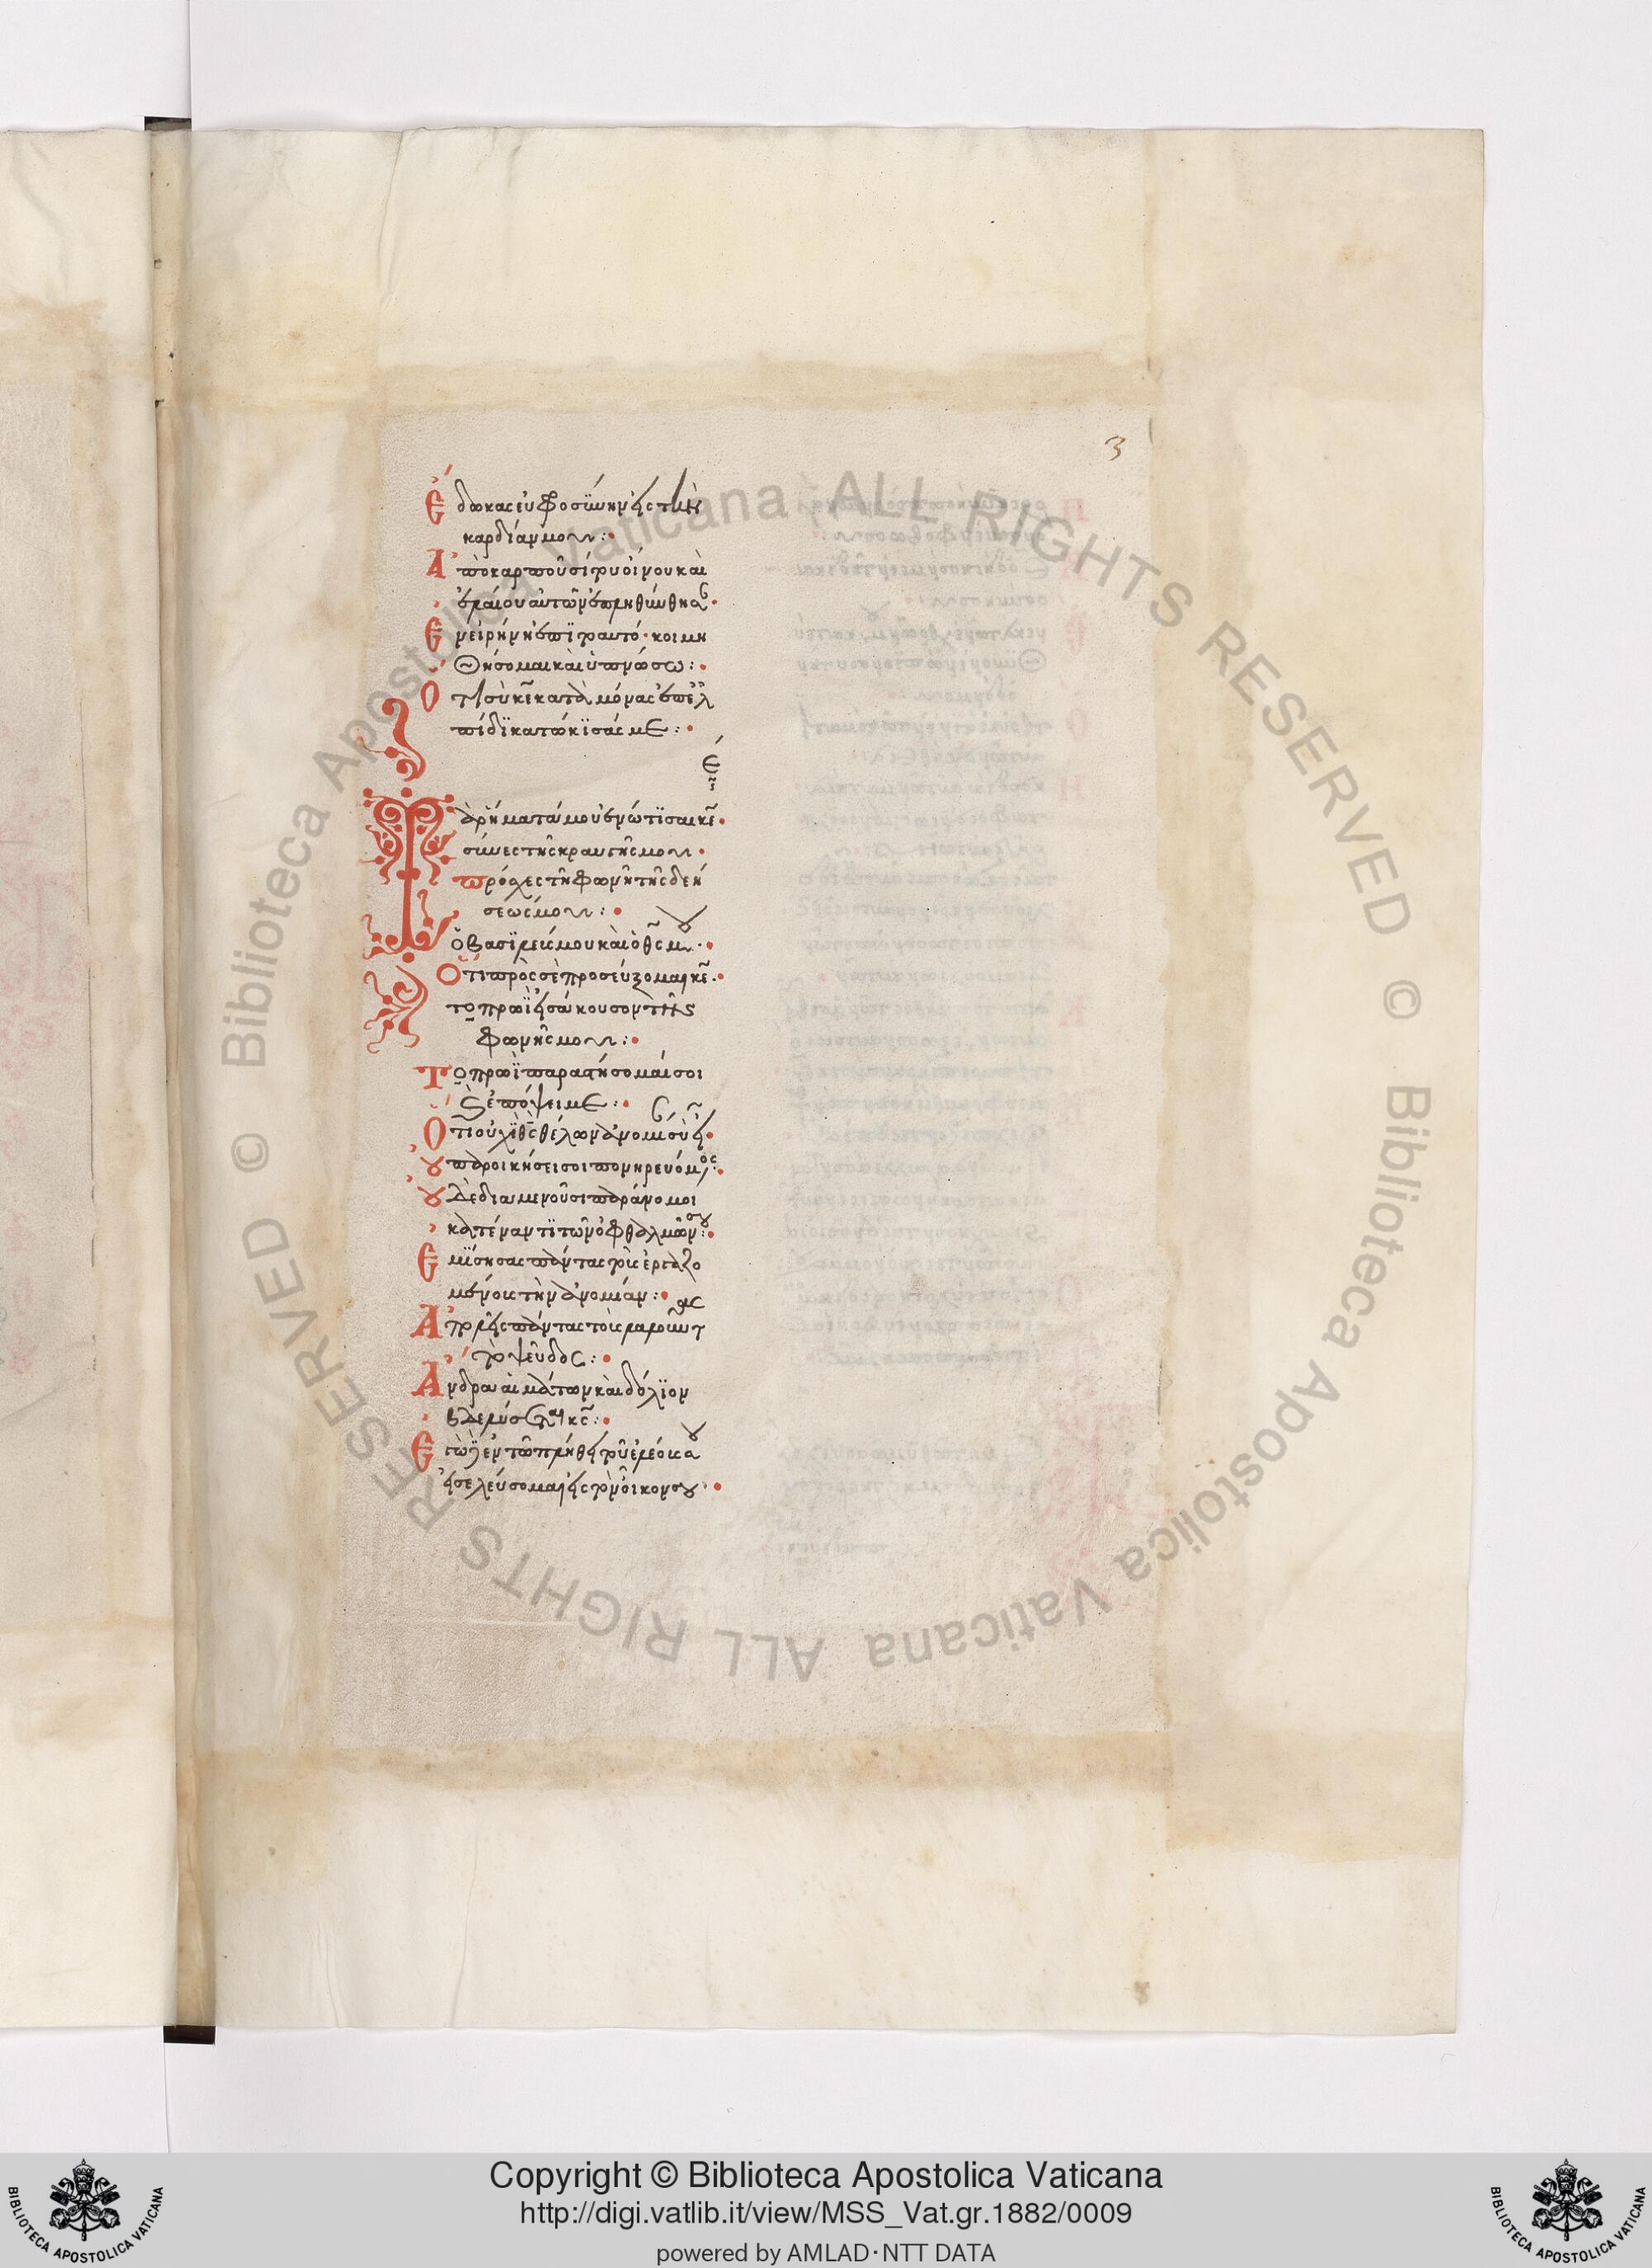 3
Ἔδωκας εὐφροσύνην εἰς τὴν
καρδίαν μου :
Ἀπὸ καρποῦ σίτου οἴνου καὶ
ἐλαίου αὐτῶν ἐπληθύνθησ
Ἐν εἰρήνη ἐπϊτοαυτό · κοιμη
Θήσομαι καὶ ὑπνώσω :
Ὅτι σὺ κε κατὰ μόνας ἐπ ἐλ
πίδϊ κατώκϊσάς με :
έ
Τὰ ρήματά μου ἐνώτϊσαι κε
σύνες τῆς κραυγῆς μου
πρόσχες τῆ φωνῆ τῆς δεή
σεώς μου :
ὁ βασϊλεύς μου καὶ ὁ θς μου
Ὅτι πρὸς σὲ προσεύξομαι κε
το πρωῒ εἰσάκουσον τῆς
φωνῆς μου :
Το πρωῒ παραστήσομαί σοι
καὶ ἐπόψει με :
Ὅτι οὐχῒ θς θέλων ἀνομίαν σὺ εἶ
Οὐ παροικήσει σοι πονηρευόμενος
Οὐδὲ διαμενοῦσι παράνομοι
κατέναντϊ τῶν ὀφθαλμῶν σου
Ἐμΐσησας πάντας τοὺς ἐργαζο
μένους τὴν ἀνομίαν :
Ἀπολεῖς πάντας τοὺς λαλοῦντας
τὸ ψεῦδος :
Ἄνδρα αἱμάτων καὶ δόλϊον
βδελύσσεται κς :
Ἐγὼ δὲ ἐν τῶ πλήθει τοῦ ἐλέους σου
εἰσελεύσομαι εἰς τὸν οἶκον σου
Copyright © Biblioteca Apostolica Vaticana
http://digi.vatlib.it/view/MSS_Vat.gr.1882/0009
powered by AMLAD·NTT DATA
BIBLIOTECA APOSTOLICA VATICANA
BIBLIOTECA APOSTOLICA VATICANA
© Biblioteca Apostolica Vaticana ALL RIGHTS RESERVED
© Biblioteca Apostolica Vaticana ALL RIGHTS RESERVED